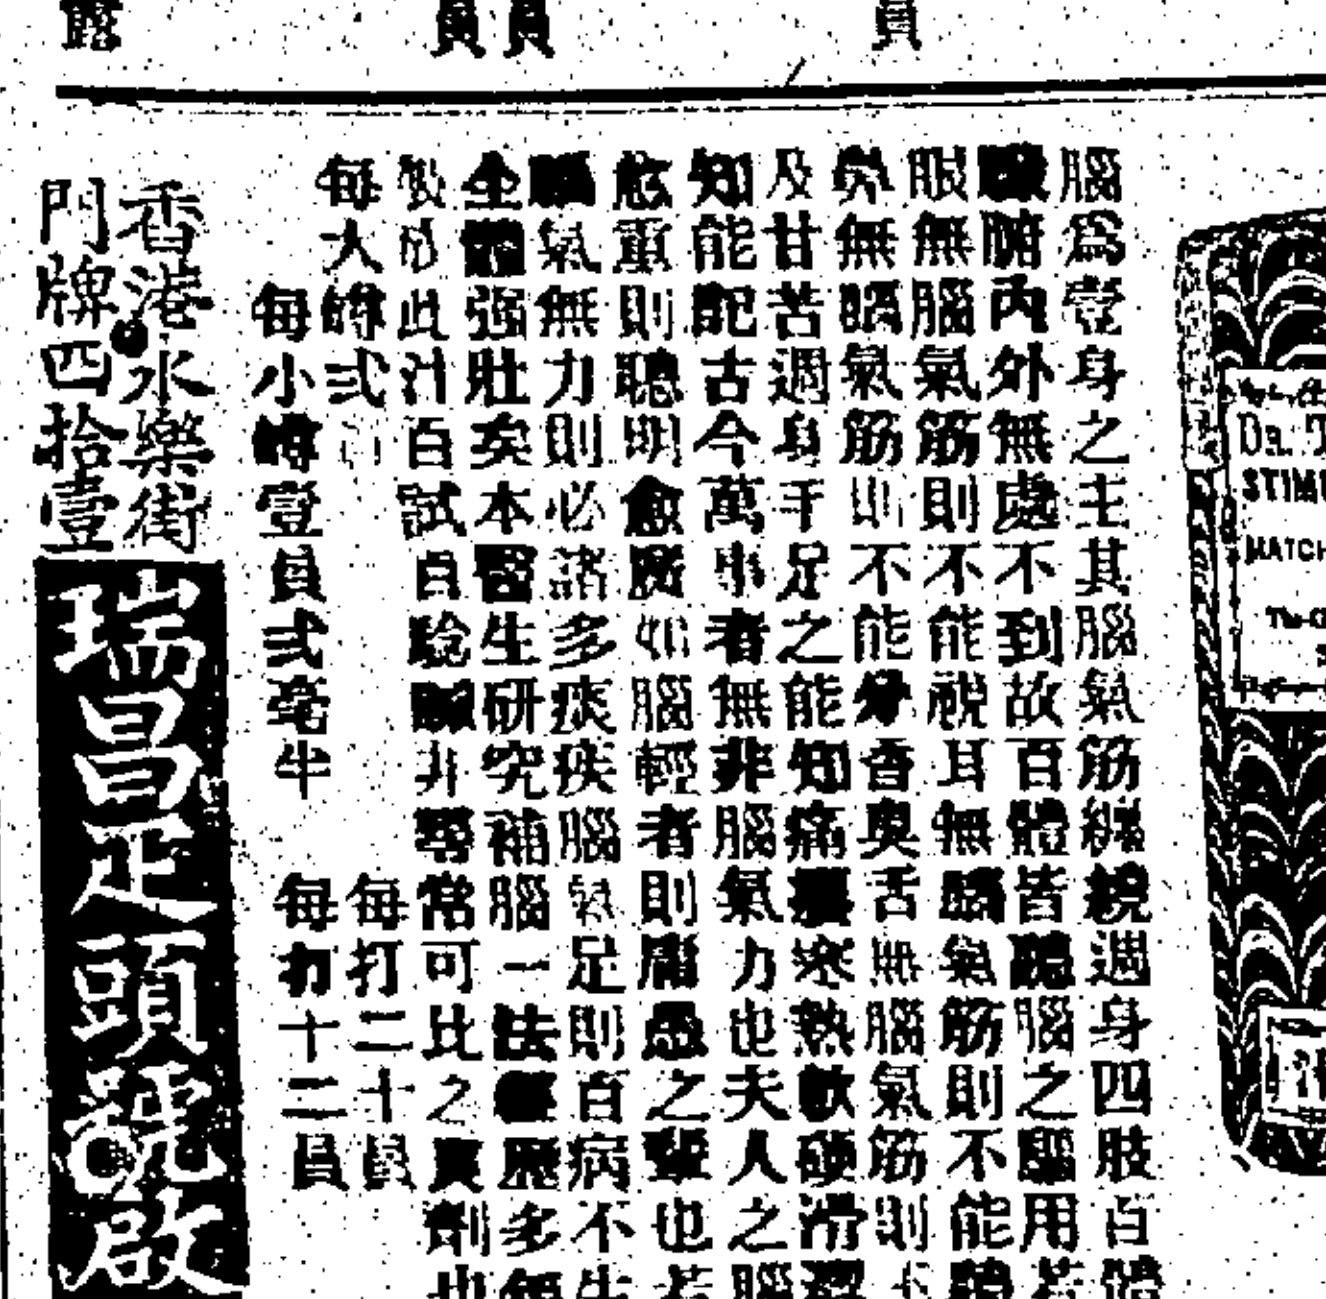 露
員
員
員
腦為壹身之主其腦氣筋纏繞週身四肢百體
臟腑內外無處不到故百體皆聽腦之驅用若
眼無腦氣筋則不能視耳無腦氣筋則不能聽
鼻無腦氣筋則不能分香臭舌無腦氣筋則不
及甘苦週身手足之能知痛癢寒熱軟硬滑澀
知能記古今萬事者無非腦氣力也夫人之腦
愈重則聰明愈廣如腦輕者則庸愚之輩也若
腦氣無力則必諸多痰疾腦氣足則百病不生
全體强壯矣本醫生研究補腦一法經歷多年
製成此汁百試百驗並非尋常可比之真劑也
每大樽弍 每打二十員
每小樽壹員弍毫半 每打十二員
香港水樂街
門牌四拾壹
瑞昌疋頭號啟
Dr. T
STIMU
MATCH